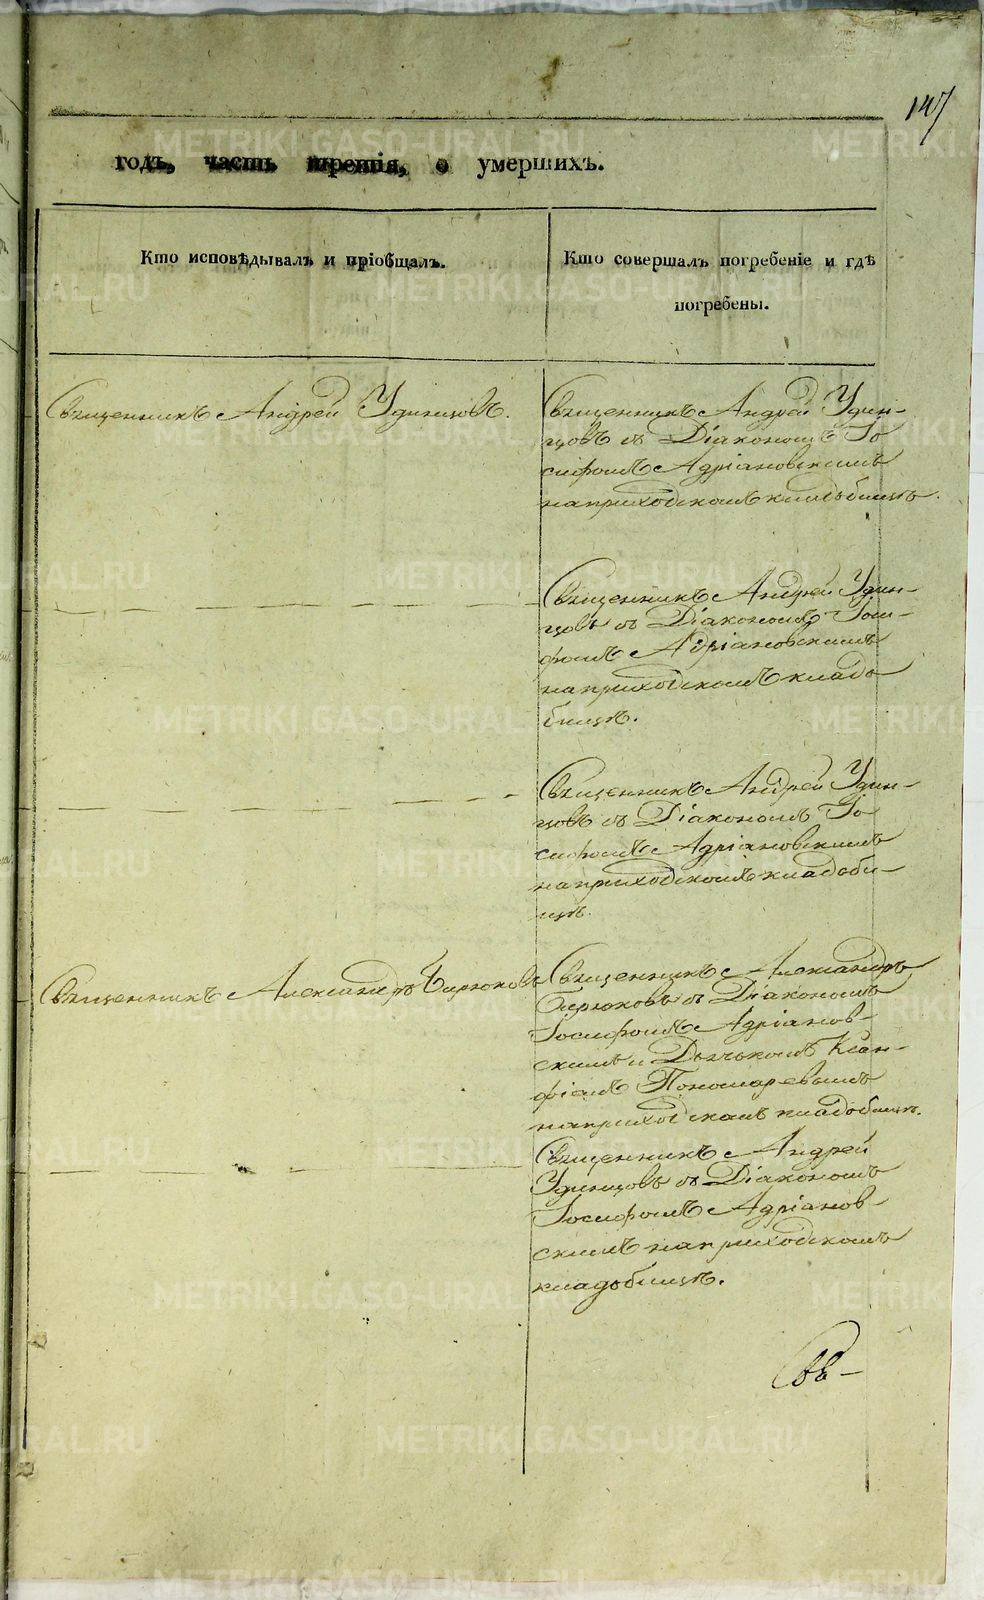 147
годъ, часть третія, о умершихъ.
Кто исповѣдывалъ и пріобщалъ.
Кто совершалъ погребеніе и гдѣ
погребены.
Священникъ Андрей Удинцовъ.
Священникъ Андрей Удин-
цовъ съ Діакономъ Іо
сифомъ Адріановскимъ
на приходскомъ кладбищѣ.
Священникъ Андрей Удин-
цовъ съ Діакономъ Іоси-
фомъ Адріановскимъ
на приходскомъ кладо
бищѣ.
Священникъ Андрей Удин-
цовъ съ Діакономъ Іо
сифомъ Адріановскимъ
на приходскомъ кладби-
щѣ.
Священникъ Александръ Бирюковъ
Священникъ Александръ
Бирюковъ съ Діакономъ
Іосифомъ Адріанов-
скимъ и Дьячькомъ Ксан-
фіемъ Пономаревымъ
на приходскомъ кладобищѣ.
Священникъ Андрей
Удинцовъ съ Діакономъ
Іосифомъ Адріанов-
скимъ на приходскомъ
кладъбищѣ.
Свя-
METRIKI.GASO-URAL.RU